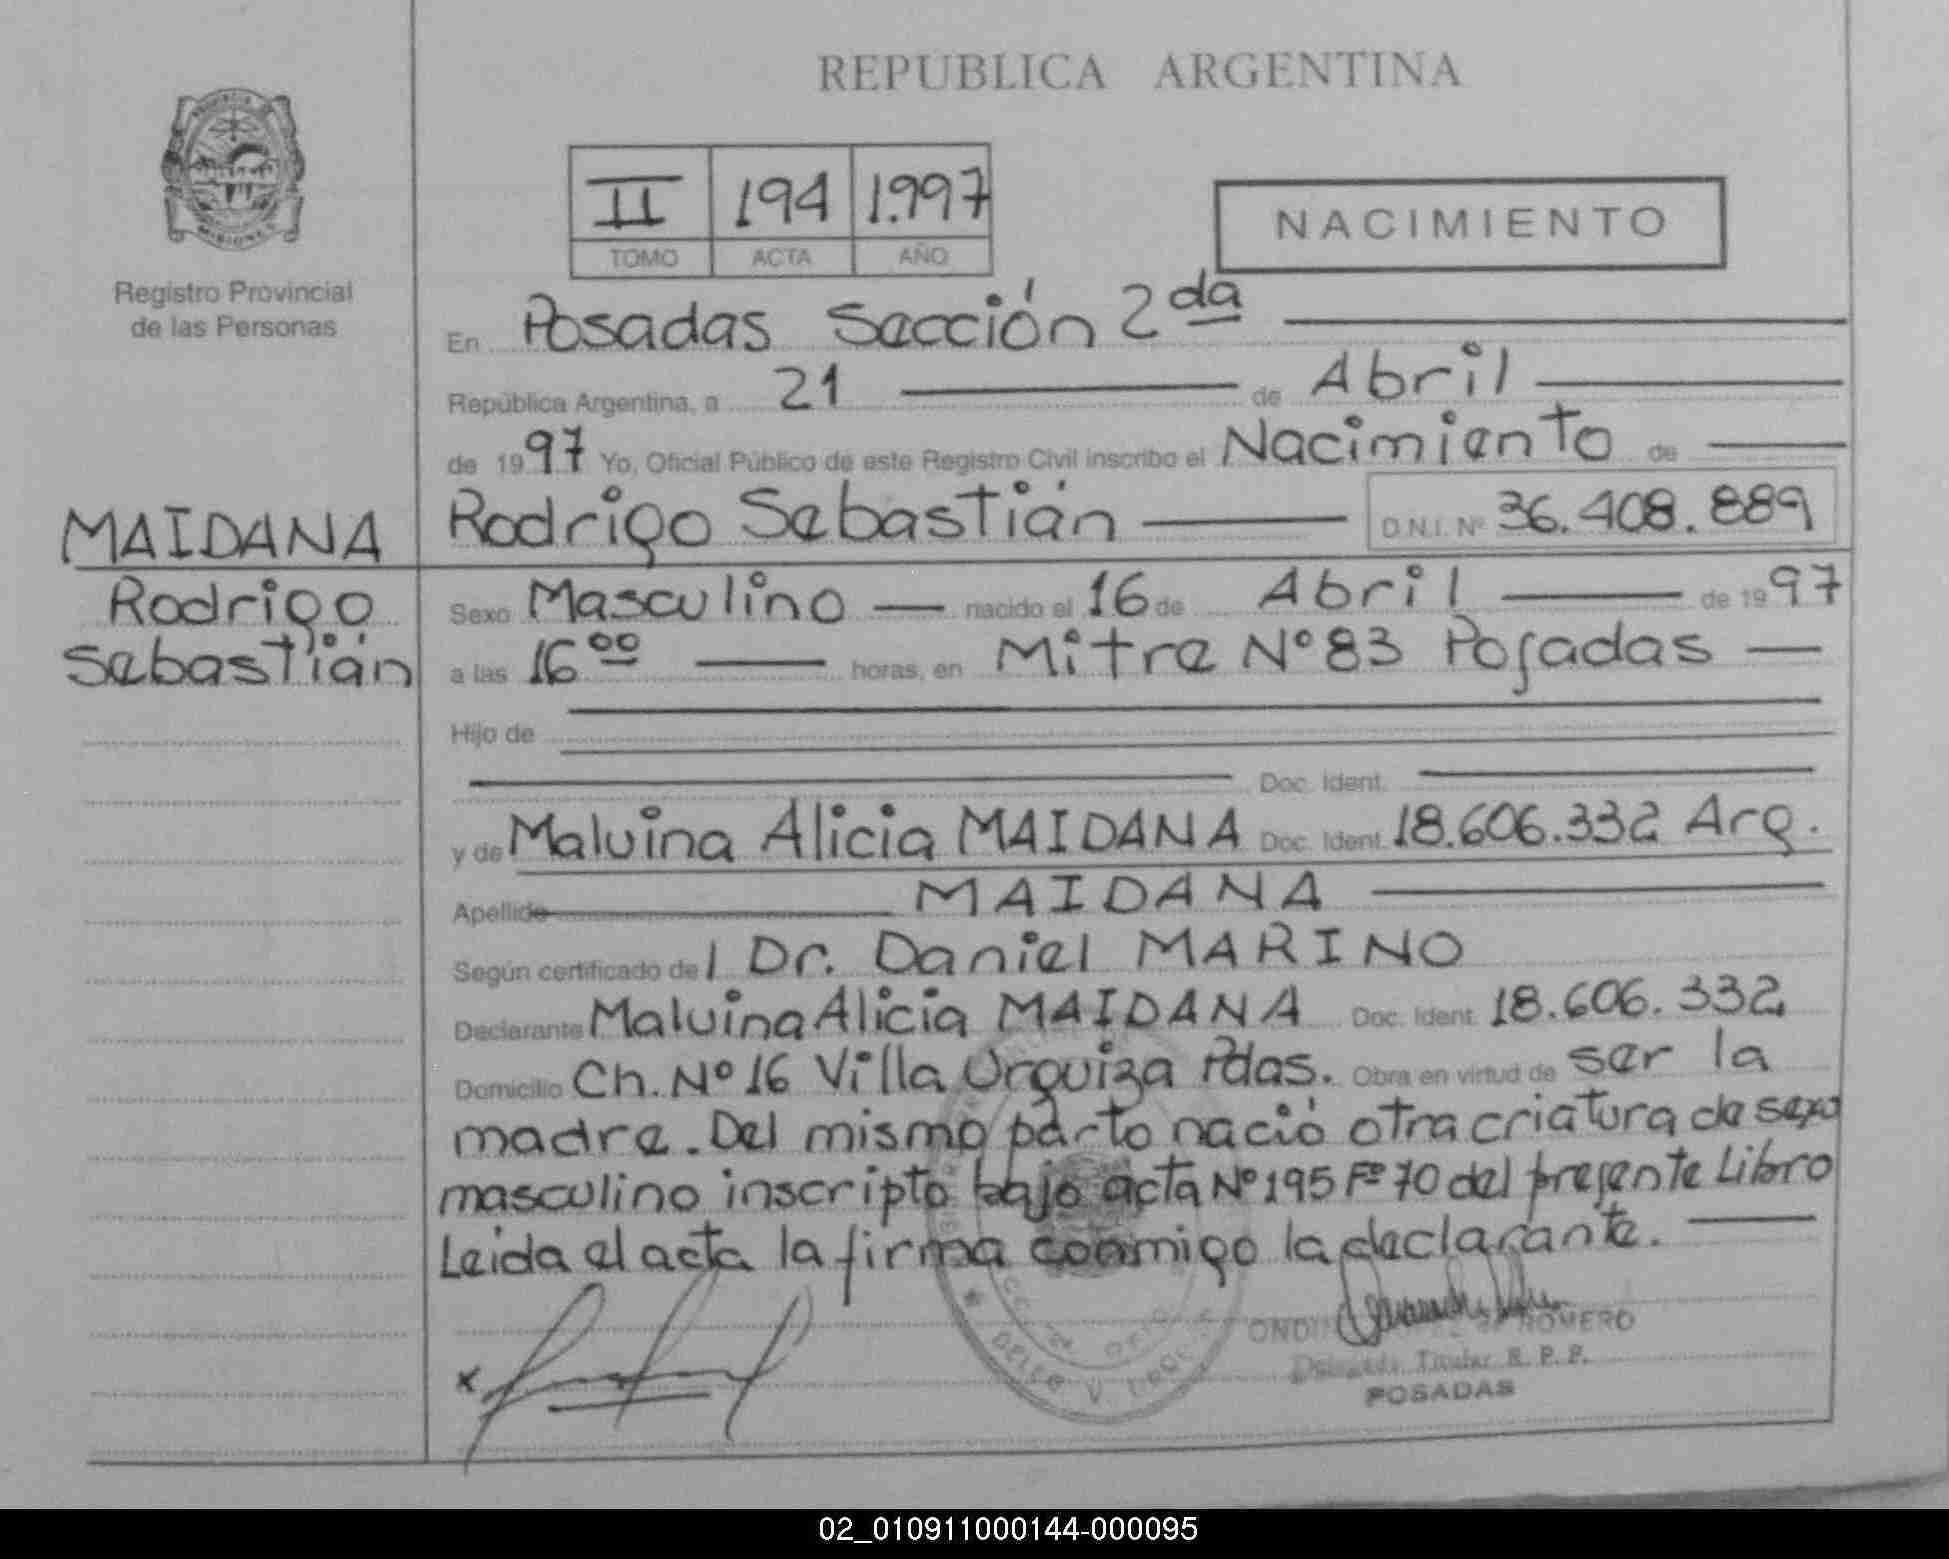 REPUBLICA ARGENTINA
MISIONES
Registro Provincial
de las Personas
II 194 1.997
TOMO ACTA AÑO
NACIMIENTO
En Posadas Sección 2da
República Argentina, a 21 de Abril
de 1997 Yo, Oficial Público de este Registro Civil inscribo el Nacimiento de
MAIDANA
Rodrigo Sebastián D.N.I. Nº 36.408.889
Rodrigo
Sebastián
Sexo Masculino nacido el 16 de Abril de 1997
a las 16 00 horas, en Mitre Nº 83 Posadas
Hijo de
Doc. Ident.
y de Malvina Alicia MAIDANA Doc. Ident. 18.606.332 Arg.
Apellido MAIDANA
Según certificado del Dr. Daniel MARINO
Declarante Malvina Alicia MAIDANA Doc. Ident. 18.606.332
Domicilio Ch. Nº 16 Villa Urquiza Pdas. Obra en virtud de ser la
madre. Del mismo parto nació otra criatura de sexo
masculino inscripto bajo acta Nº 195 Fº 70 del presente Libro
Leida el acta la firma conmigo la declarante.
x
ROMERO
Delegada Titular R. P. P.
POSADAS
02_010911000144-000095